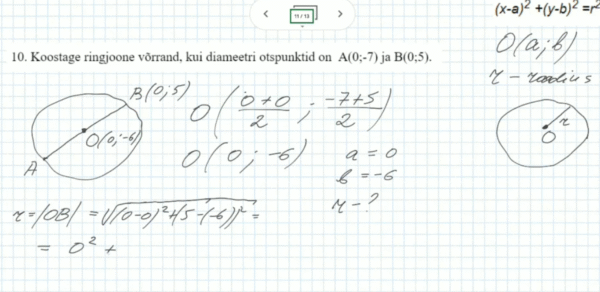 11 / 13
(x-a)² +(y-b)² =r²
O(a;b)
r – radius
10. Koostage ringjoone võrrand, kui diameetri otspunktid on A(0;-7) ja B(0;5).
B(0;5)
O(0;-6)
A
O((0+0)/2 ; (-7+5)/2)
O(0;-6)
a = 0
b = -6
r – ?
r
O
r = |OB| = √((0-0)²+(5-(-6))²) =
= 0² +